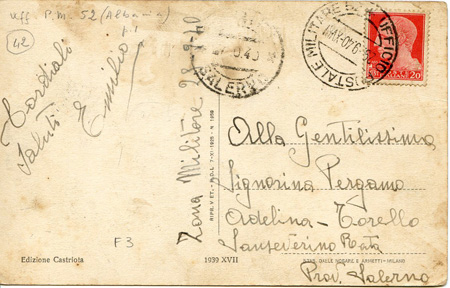 Uff P.M. 52 (Albania)
42
Cordiali
Saluti
Emilio
Zona Militore 28-9-40
SALERNO
UFFICIO
POSTALE MILITARE
20
Alla Gentilissima
Signorina Pergamo
Adelina - Torello
Sanseverino Rota
Prov. Salerno
F3
Edizione Castriota
1939 XVII